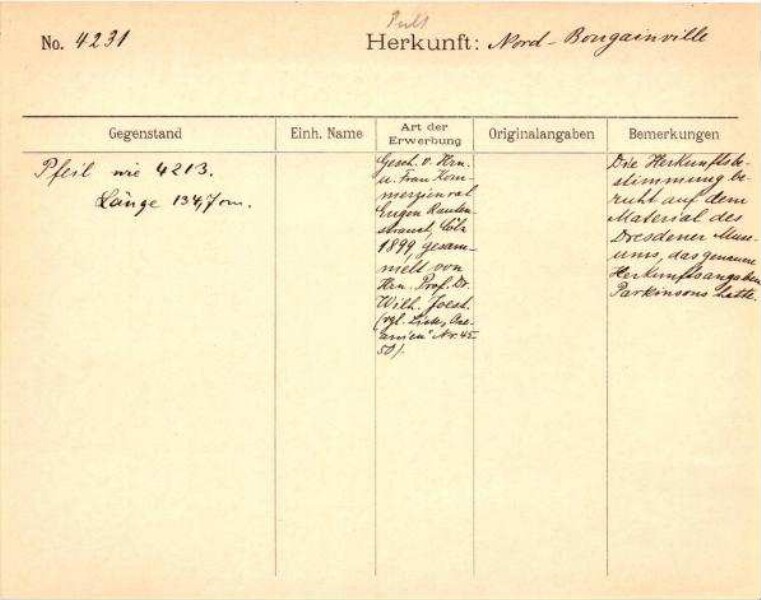 Pult
No. 4231
Herkunft: Nord-Bougainville
Gegenstand
Einh. Name
Art der
Erwerbung
Originalangaben
Bemerkungen
Pfeil wie 4213.
Länge 134,7 cm.
Gesch. v. Hrn.
u. Frau Kom-
merzienrat
Eugen Rauten-
strauch, Cöln
1899, gesam-
melt von
Hrn. Prof. Dr.
Wilh. Joest.
(vgl. Liste „Oce-
anien" Nr. 45-
50/.
Die Herkunftsbe-
stimmung be-
ruht auf dem
Material des
Dresdener Muse-
ums, das genauere
Herkunftsangaben
Parkinsons hatte.